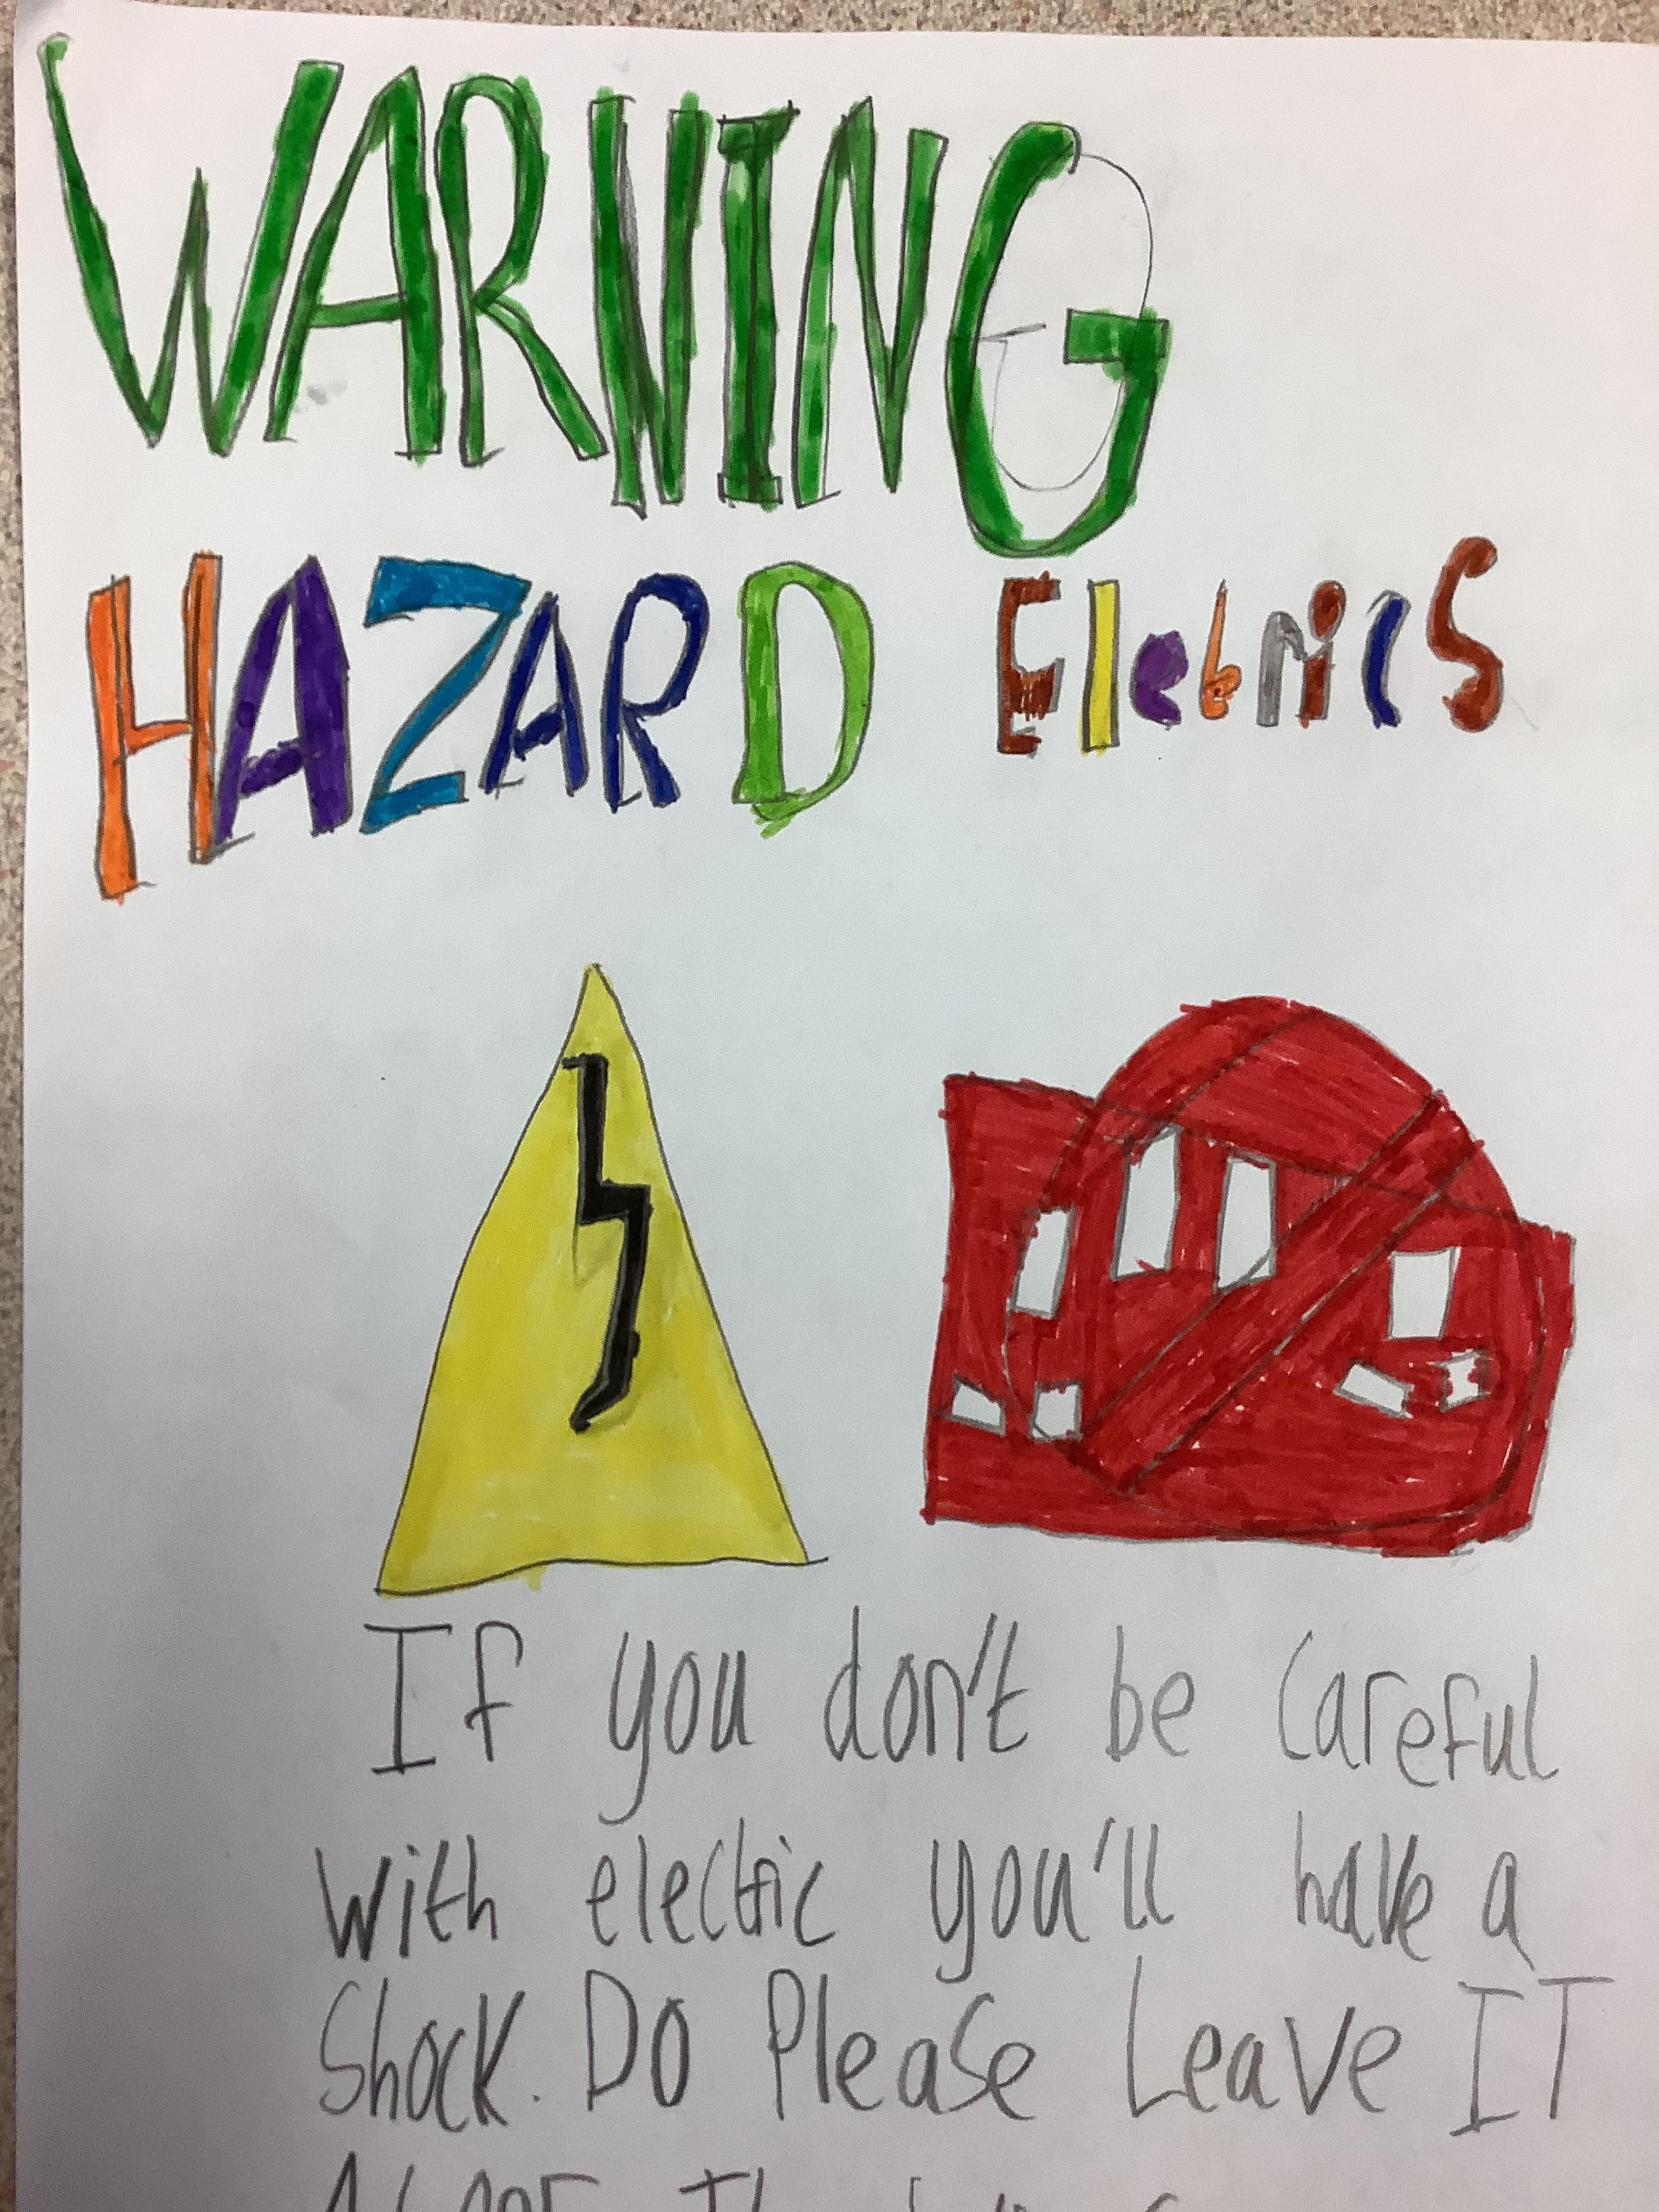 WARNING
HAZARD Eletrics
If you don't be careful
with electric you'll have a
Shock. Do Please Leave IT